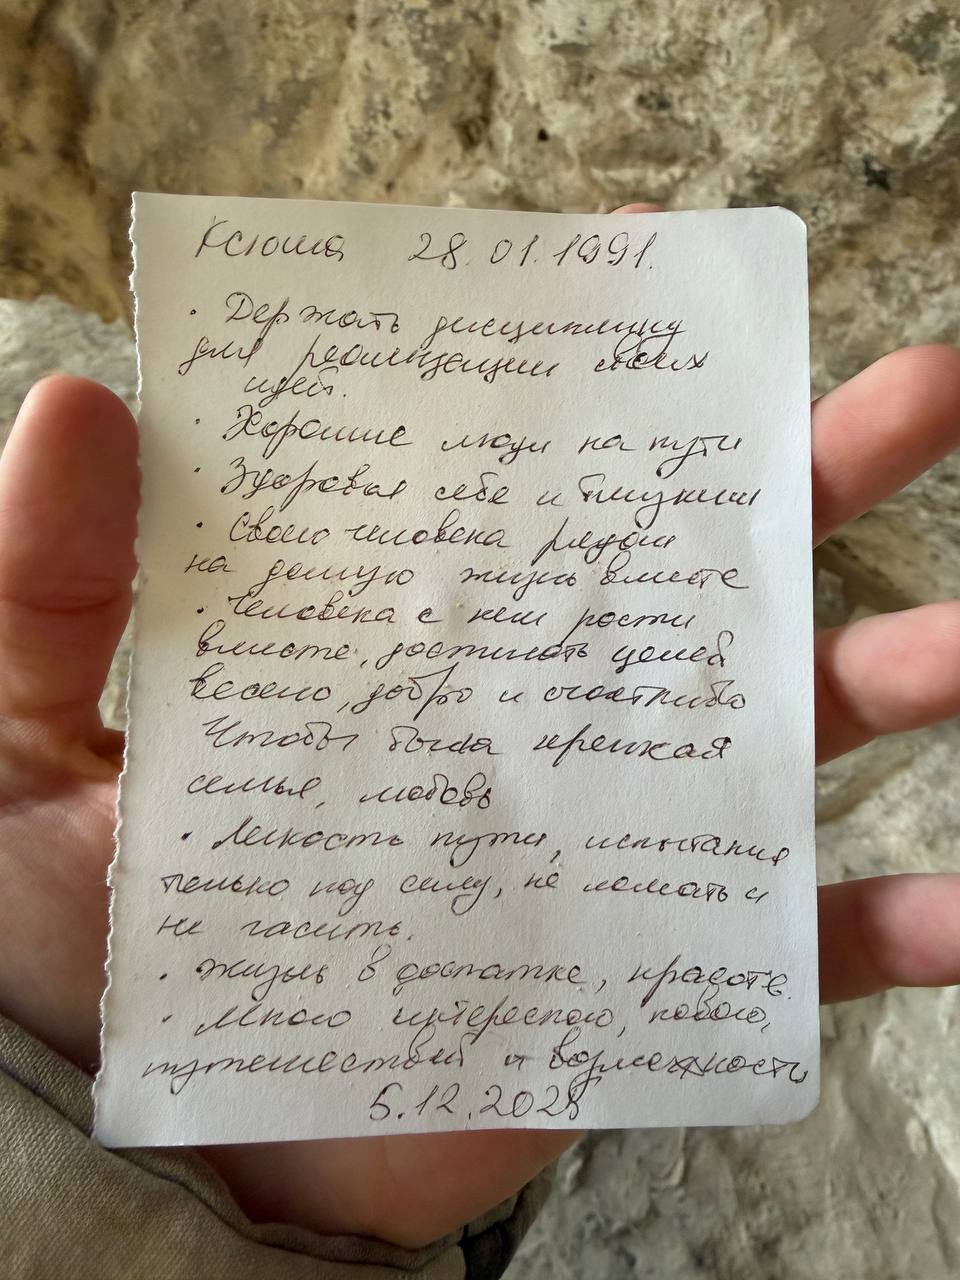 Ксюша 28.01.1991.
· Держать дисциплину
для реализации своих
идей.
· Хорошие люди на пути
· Здоровья себе и близким
· Своего человека рядом
на долгую жизнь вместе
· Человека с кем расти
вместе, достигать целей
весело, добро и счастливо
Чтобы была крепкая
семья, любовь
· Легкость пути, испытания
только под силу, не ломать и
не гасить.
· Жизнь в достатке, красоте.
· Много интересного, нового,
путешествий и возможность
5.12.2025